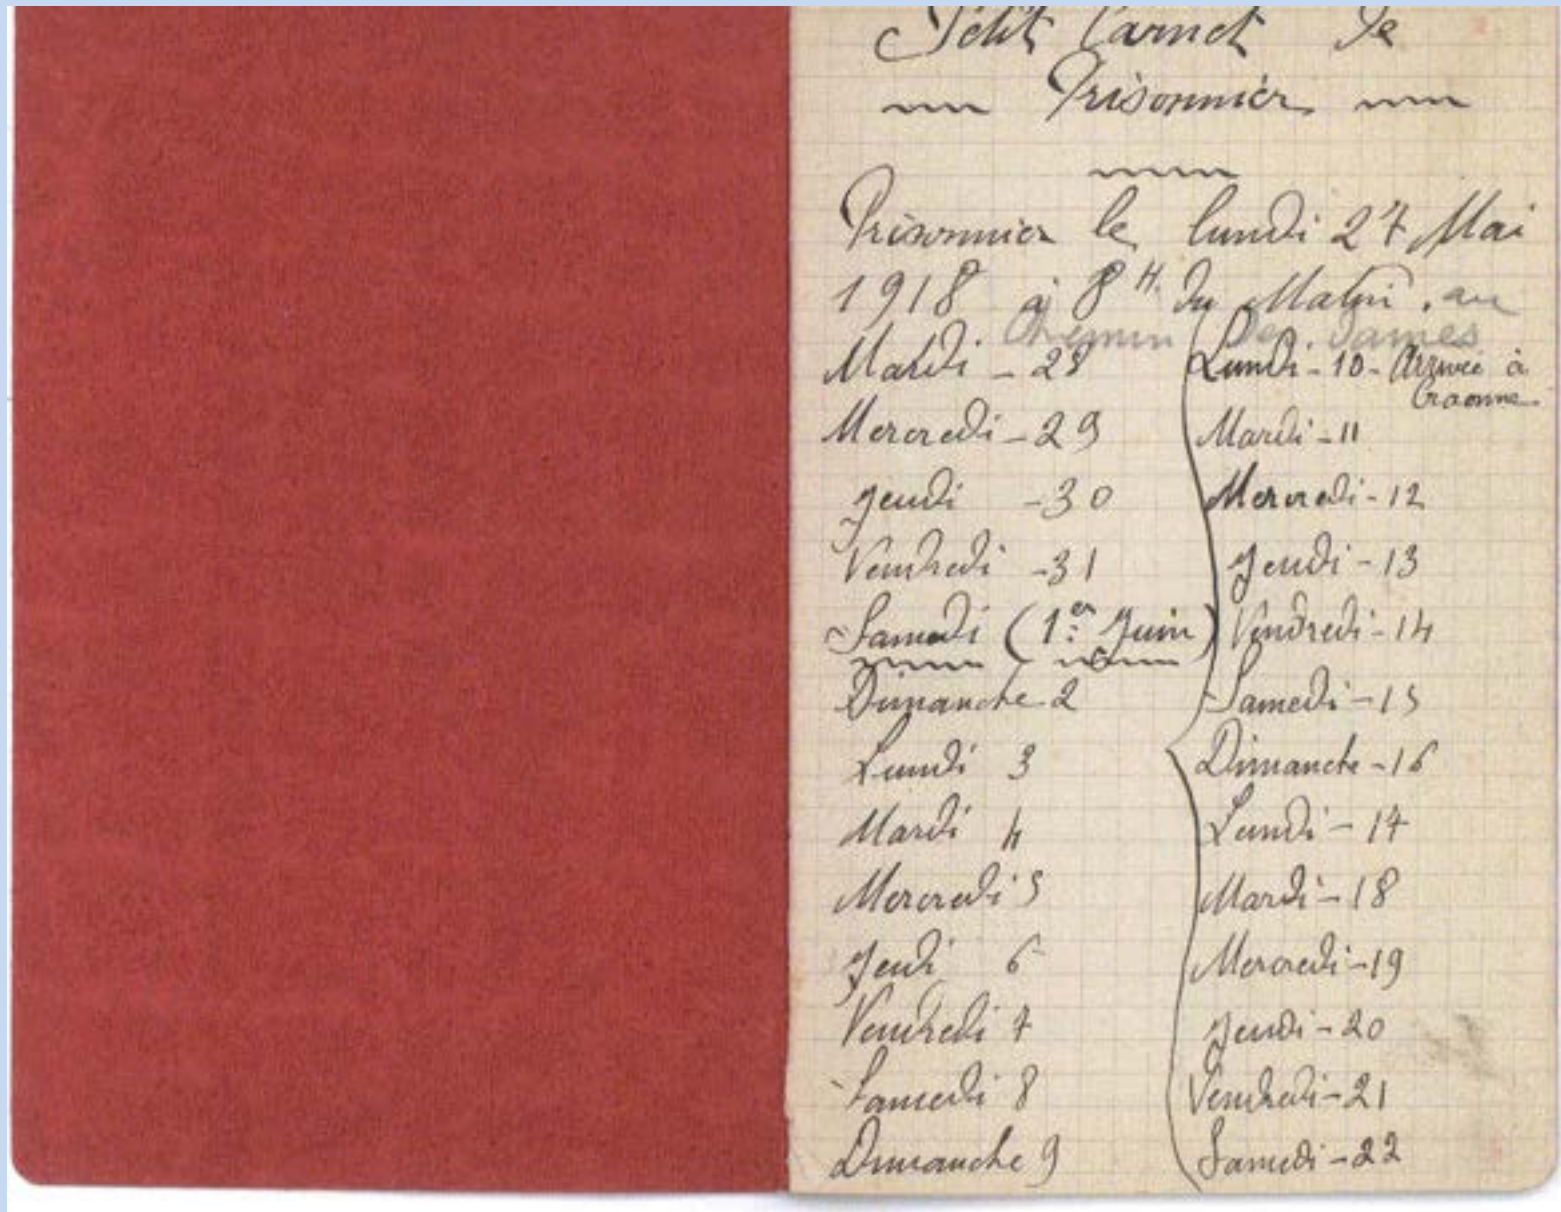 Petit Carnet de
Prisonnier
Prisonnier le lundi 27 Mai
1918 à 8 H. du Matin. au
Chemin des Dames
Mardi - 28
Mercredi - 29
Jeudi - 30
Vendredi - 31
Samedi (1er Juin)
Dimanche 2
Lundi 3
Mardi 4
Mercredi 5
Jeudi 6
Vendredi 7
Samedi 8
Dimanche 9
Lundi - 10 - Arrivée à
Craonne
Mardi - 11
Mercredi - 12
Jeudi - 13
Vendredi - 14
Samedi - 15
Dimanche - 16
Lundi - 17
Mardi - 18
Mercredi - 19
Jeudi - 20
Vendredi - 21
Samedi - 22